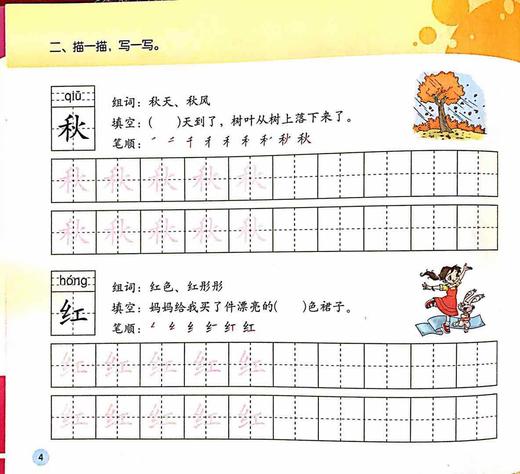 二、描一描，写一写。
qiū
秋
组词：秋天、秋风
填空：(　　)天到了，树叶从树上落下来了。
笔顺：㇒ 二 千 禾 禾 禾 秒 秋
秋 秋 秋 秋 秋
秋 秋 秋 秋 秋
hóng
红
组词：红色、红彤彤
填空：妈妈给我买了件漂亮的(　　)色裙子。
笔顺：纟 红 红
红 红 红 红 红
红 红 红 红 红
4